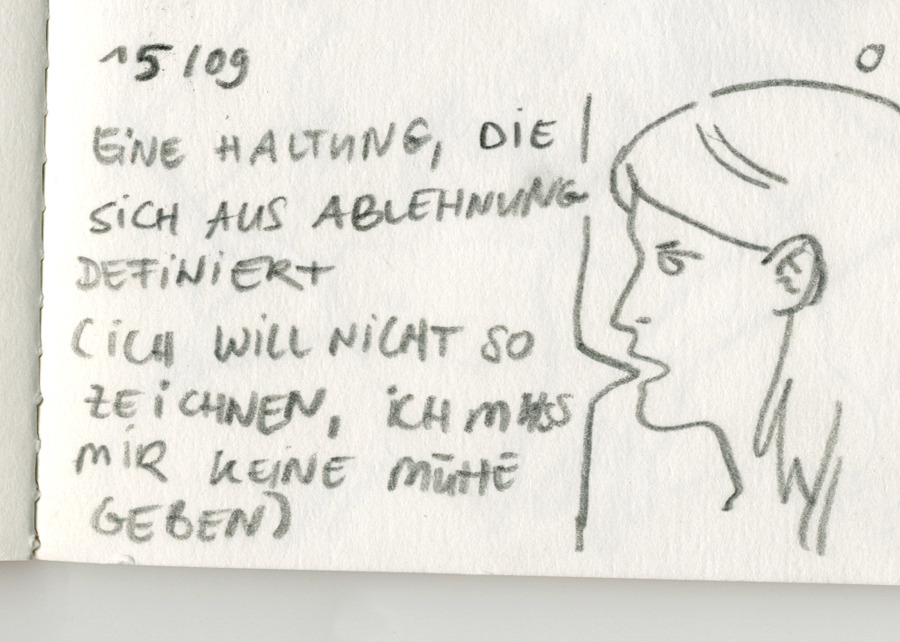 15/09
EINE HALTUNG, DIE
SICH AUS ABLEHNUNG
DEFINIERT
(ICH WILL NICHT SO
ZEICHNEN, ICH MUSS
MIR KEINE MÜHE
GEBEN)